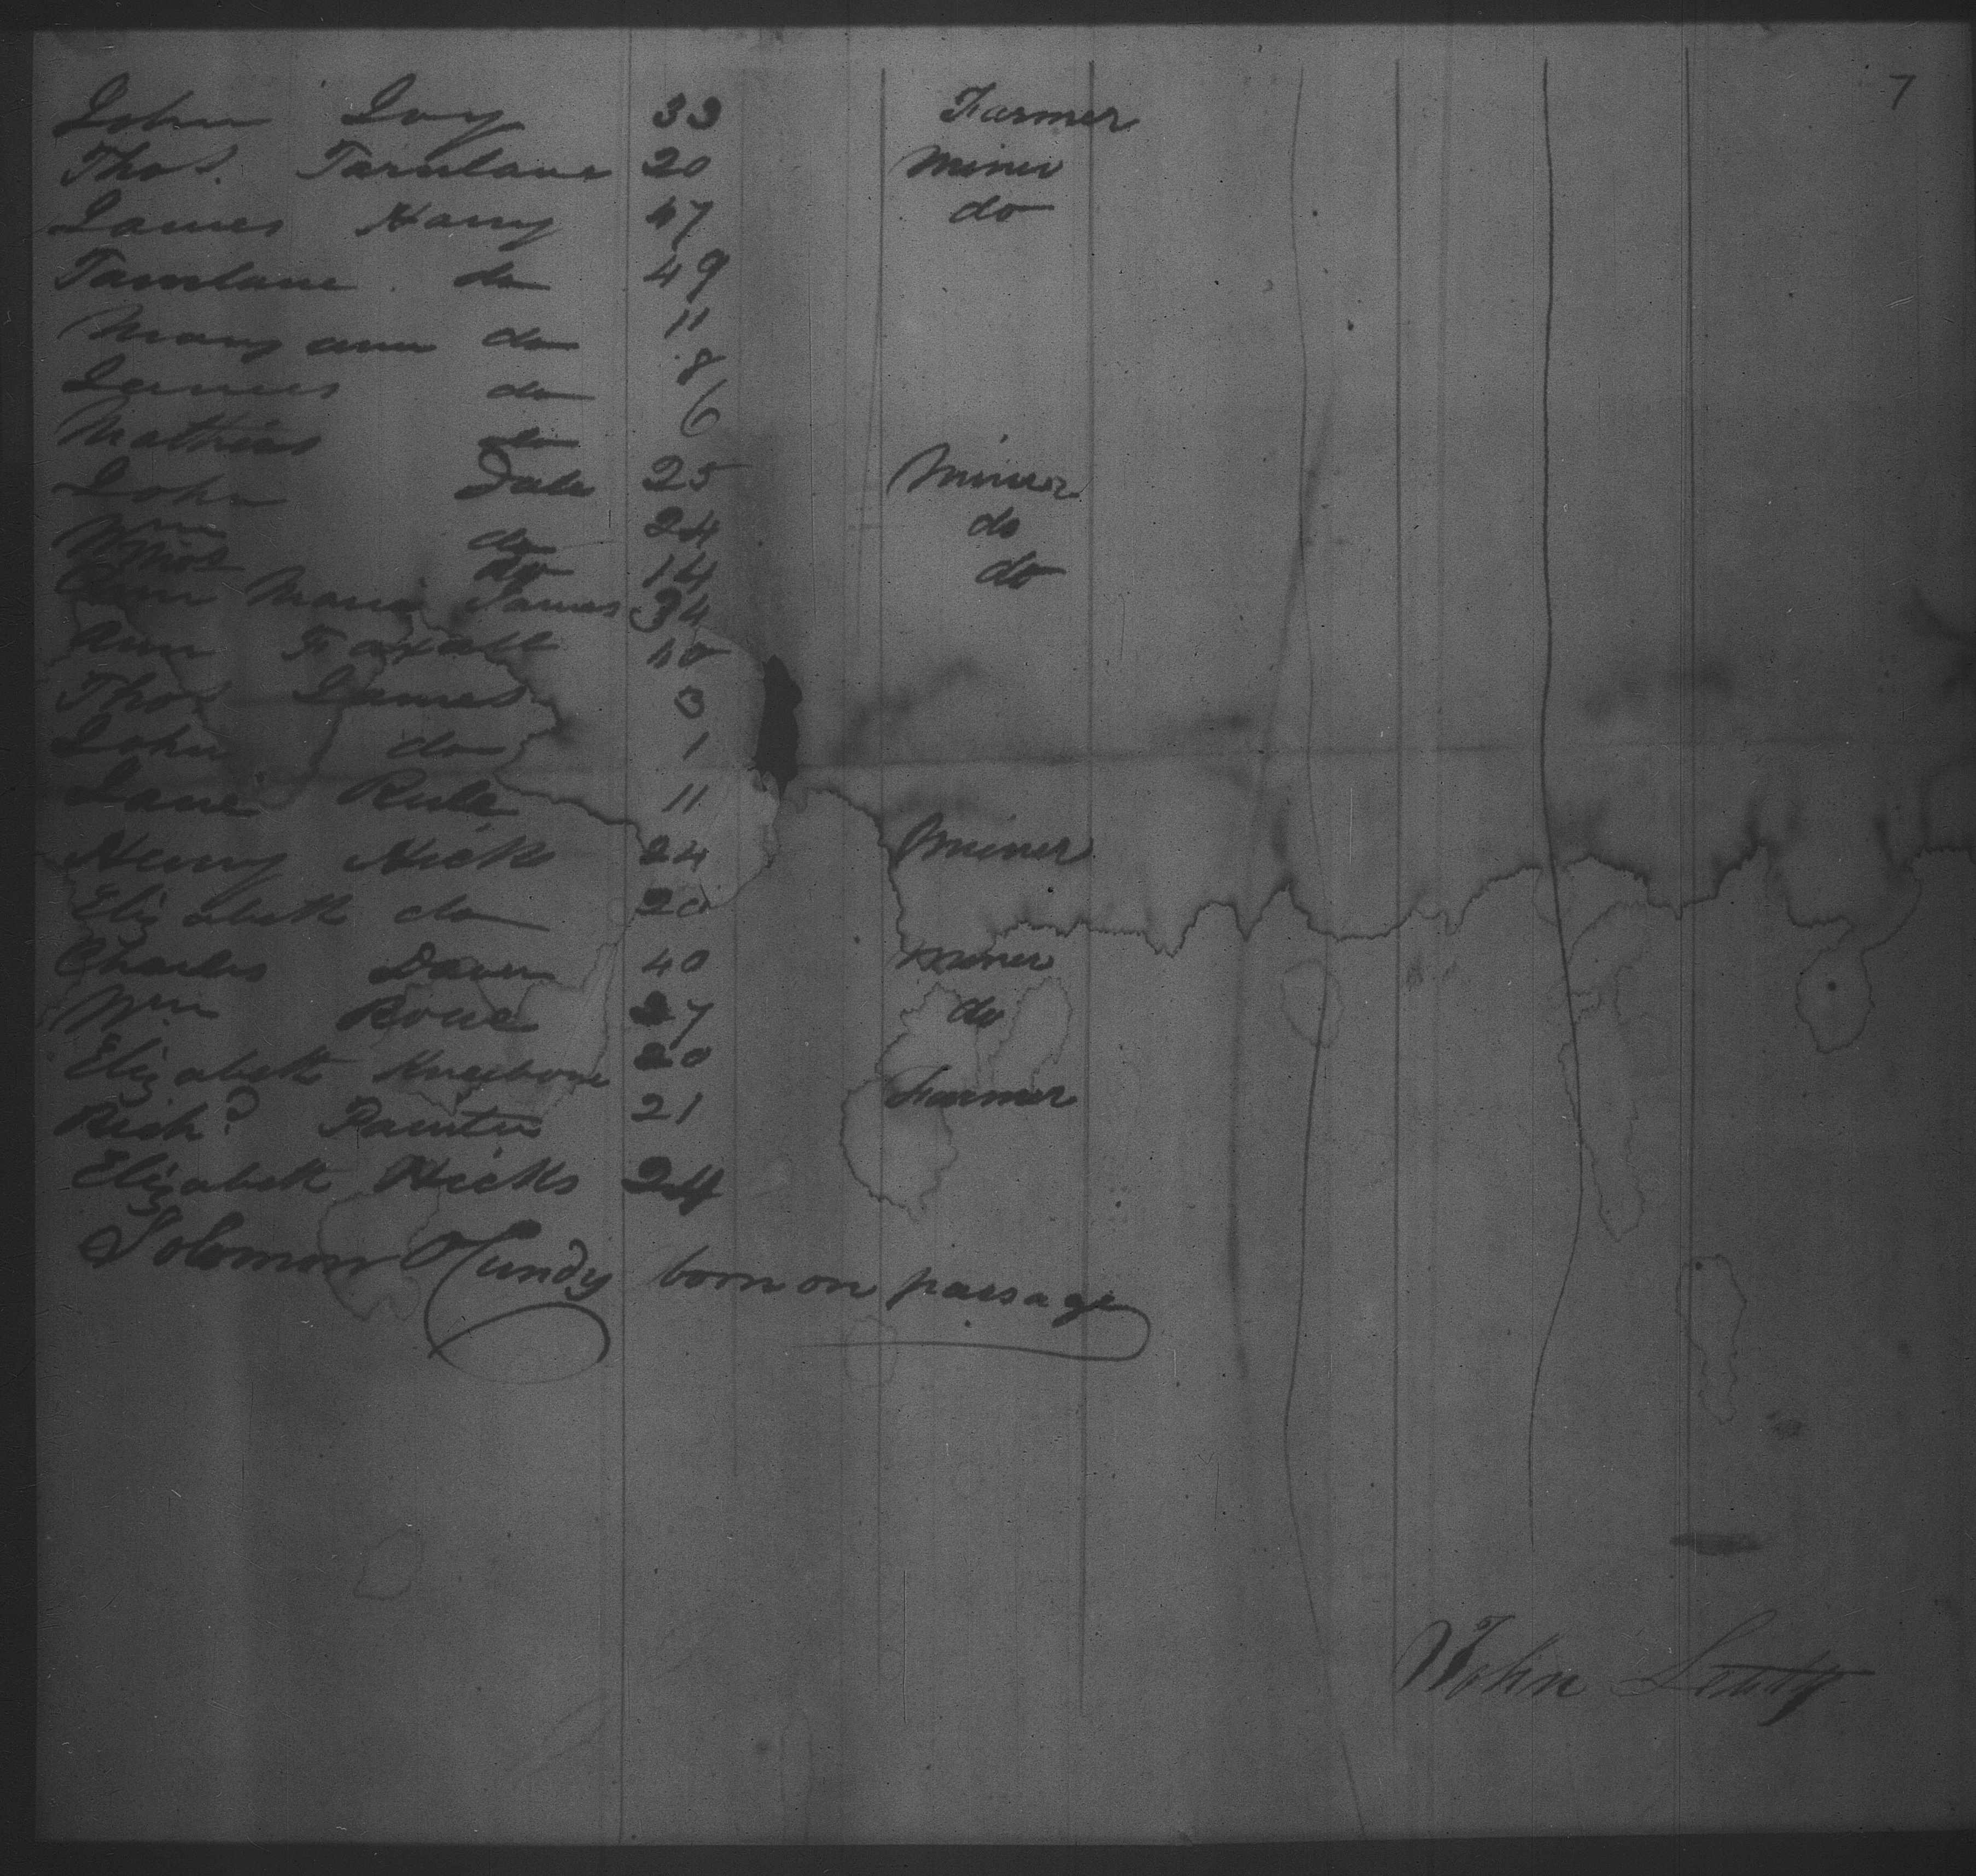 7
John Ivy 33 Farmer
Thos. Tamlane 20 Miner
James Harry 47 do
Tamlane do 49
Mary ann do 11
James do 8
Mathias do 6
John Dale 25 Miner
Wm do 24 do
Thos do 14 do
Ann Maria James 34
Ann Foxall 40
Thos James 3
John do 1
Jane Rule 11
Henry Hicks 24 Miner
Elizabeth do 20
Charles 40 Miner
Wm Rowe 27 do
Elizabeth Kneebone 20
Richd Painter 21 Farmer
Elizabeth Hicks 24
Solomon O Cundy born on passage
John